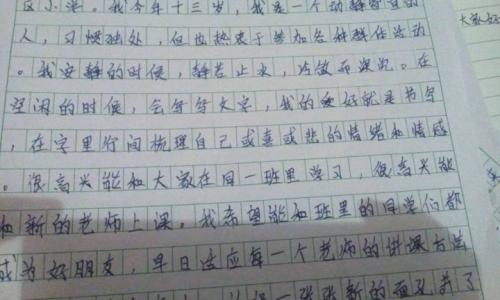 我今年十三岁，我是一个动静皆宜的
人，习惯独处，但也热衷于参加各种班级活动
。我安静的时候，静若止水，沉敛而深沉。在
空闲的时候，会写写文字，我的爱好就是书写
，在字里行间梳理自己或喜或悲的情绪和情感
。很高兴能和大家在同一班里学习，很高兴能
和新的老师上课。我希望能和班里的同学们都
成为好朋友，早日适应每一个老师的讲课方法
一张张新的面孔
大家好